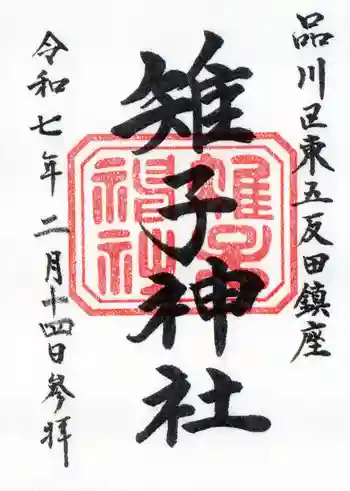 品川区東五反田鎮座
雉子神社
雉子神社
令和七年二月十四日参拝